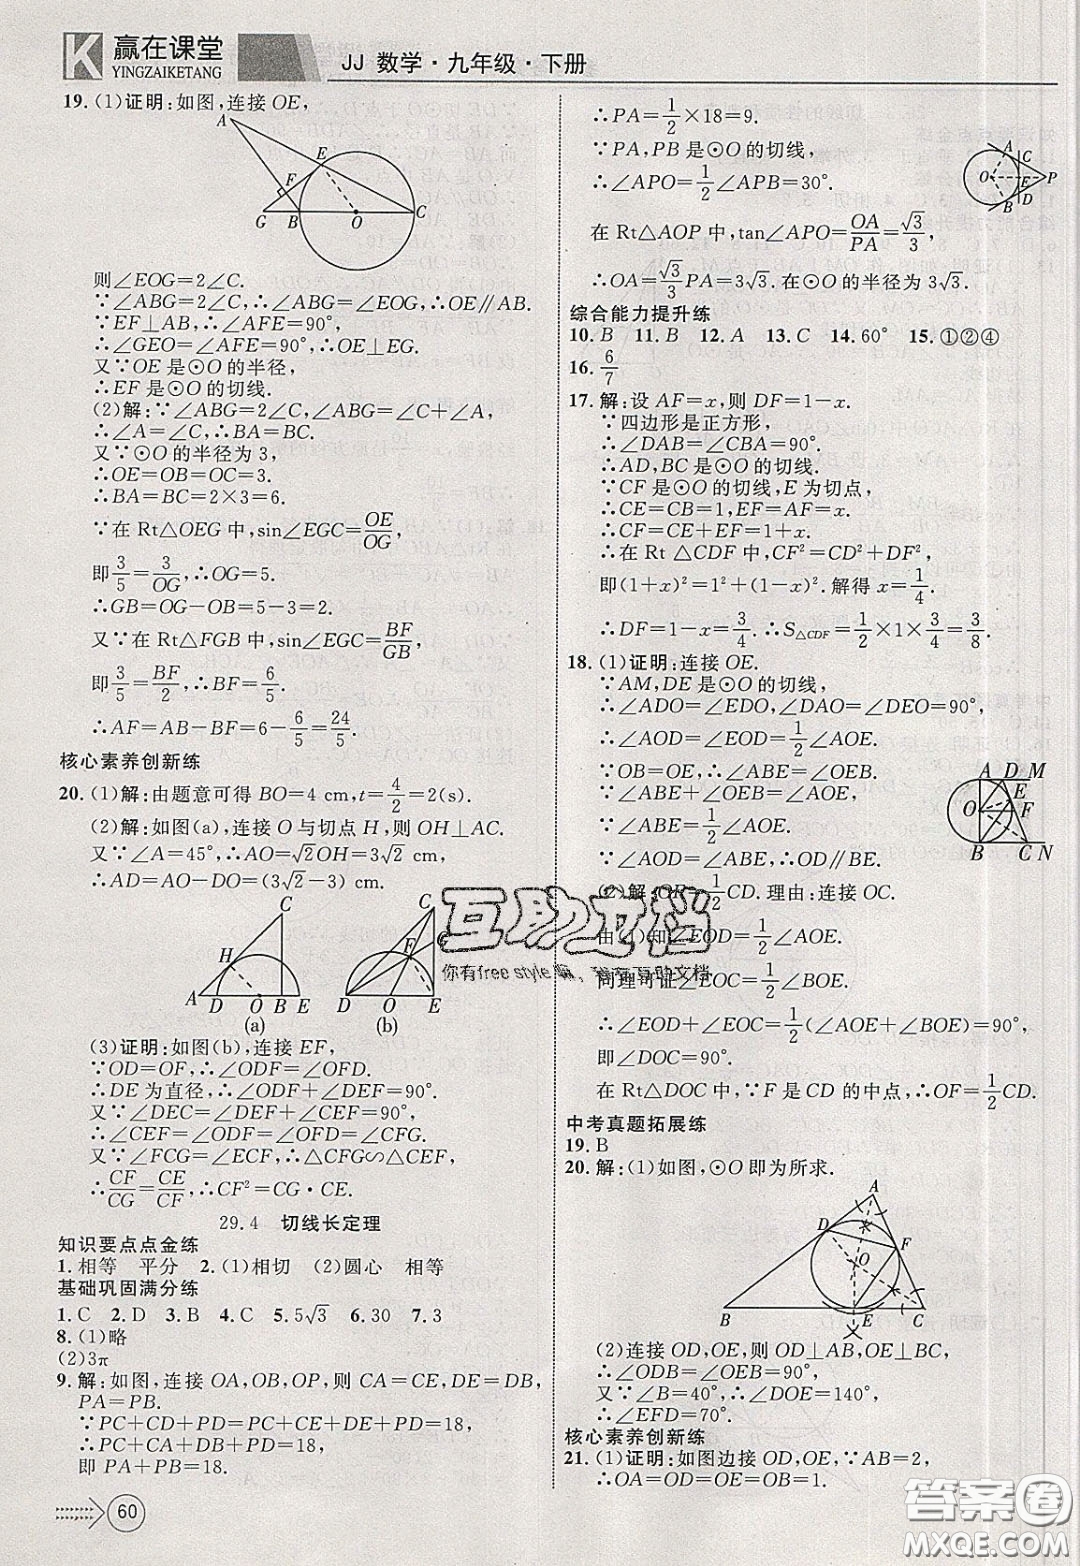 K 赢在课堂
YINGZAIKETANG
JJ 数学·九年级·下册
19. (1)证明:如图,连接OE,
A
E
F
G B O C
则∠EOG=2∠C.
∵∠ABG=2∠C,∴∠ABG=∠EOG,∴OE∥AB.
∵EF⊥AB,∴∠AFE=90°,
∴∠GEO=∠AFE=90°,∴OE⊥EG.
又∵OE是⊙O的半径,
∴EF是⊙O的切线.
(2)解:∵∠ABG=2∠C,∠ABG=∠C+∠A,
∴∠A=∠C,∴BA=BC.
又∵⊙O的半径为3,
∴OE=OB=OC.
∴BA=BC=2×3=6.
∵在Rt△OEG中,sin∠EGC=OE/OG,
即3/5=3/OG,∴OG=5.
∴GB=OG-OB=5-3=2.
又∵在Rt△FGB中,sin∠EGC=BF/GB,
即3/5=BF/2,∴BF=6/5,
∴AF=AB-BF=6-6/5=24/5.
核心素养创新练
20. (1)解:由题意可得BO=4 cm,t=4/2=2(s).
(2)解:如图(a),连接O与切点H,则OH⊥AC.
又∵∠A=45°,∴AO=√2OH=3√2 cm,
∴AD=AO-DO=(3√2-3) cm.
C
H
A D O B E
(a)
C
F
G
D O E
(b)
(3)证明:如图(b),连接EF,
∵OD=OF,∴∠ODF=∠OFD.
∴DE为直径,∴∠ODF+∠DEF=90°.
又∵∠DEC=∠DEF+∠CEF=90°,
∴∠CEF=∠ODF=∠OFD=∠CFG.
又∵∠FCG=∠ECF,∴△CFG∽△CEF,
∴CF/CE=CG/CF,∴CF²=CG·CE.
29.4 切线长定理
知识要点点金练
1. 相等 平分 2. (1)相切 (2)圆心 相等
基础巩固满分练
1. C 2. D 3. B 4. C 5. 5√3 6. 30 7. 3
8. (1)略
(2)3π
9. 解:如图,连接OA,OB,OP,则CA=CE,DE=DB,
PA=PB.
∵PC+CD+PD=PC+CE+DE+PD=18,
∴PC+CA+DB+PD=18,
即PA+PB=18.
60
∴PA=1/2×18=9.
∵PA,PB是⊙O的切线,
∴∠APO=1/2∠APB=30°.
在Rt△AOP中,tan∠APO=OA/PA=√3/3,
∴OA=√3/3PA=3√3.∴⊙O的半径为3√3.
A C
E
O P
D
B
综合能力提升练
10. B 11. B 12. A 13. C 14. 60° 15. ①②④
16. 6/7
17. 解:设AF=x,则DF=1-x.
∵四边形是正方形,
∴∠DAB=∠CBA=90°.
∴AD,BC是⊙O的切线.
∵CF是⊙O的切线,E为切点,
∴CE=CB=1,EF=AF=x.
∴CF=CE+EF=1+x.
∴在Rt △CDF中,CF²=CD²+DF²,
即(1+x)²=1²+(1-x)².解得x=1/4.
∴DF=1-x=3/4.∴S△CDF=1/2×1×3/4=3/8.
18. (1)证明:连接OE.
∵AM,DE是⊙O的切线,
∴∠ADO=∠EDO,∠DAO=∠DEO=90°,
∴∠AOD=∠EOD=1/2∠AOE.
∵OB=OE,∴∠ABE=∠OEB.
∵∠ABE+∠OEB=∠AOE,
∴∠ABE=1/2∠AOE.
∴∠AOD=∠ABE,∴OD∥BE.
A D M
E
O F
B C N
(2)解:OF=1/2CD.理由:连接OC.
由(1)知∠EOD=1/2∠AOE.
同理可证∠EOC=1/2∠BOE.
∴∠EOD+∠EOC=1/2(∠AOE+∠BOE)=90°,
即∠DOC=90°.
在Rt△DOC中,∵F是CD的中点,∴OF=1/2CD.
中考真题拓展练
19. B
20. 解:(1)如图,⊙O即为所求.
A
D
F
O
B E C
(2)连接OD,OE,则OD⊥AB,OE⊥BC,
∴∠ODB=∠OEB=90°.
又∵∠B=40°,∴∠DOE=140°,
∴∠EFD=70°.
核心素养创新练
21. (1)证明:如图边接OD,OE,∵AB=2,
∴OA=OD=OE=OB=1.
互助文档
答案圈
MXQE.COM